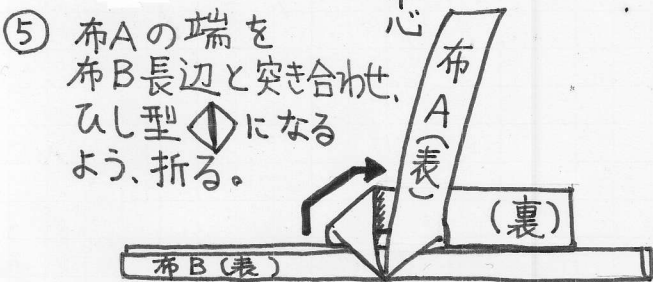 心
⑤ 布Aの端を
布B長辺と突き合わせ、
ひし型になる
よう、折る。
布A(表)
(裏)
布B(表)